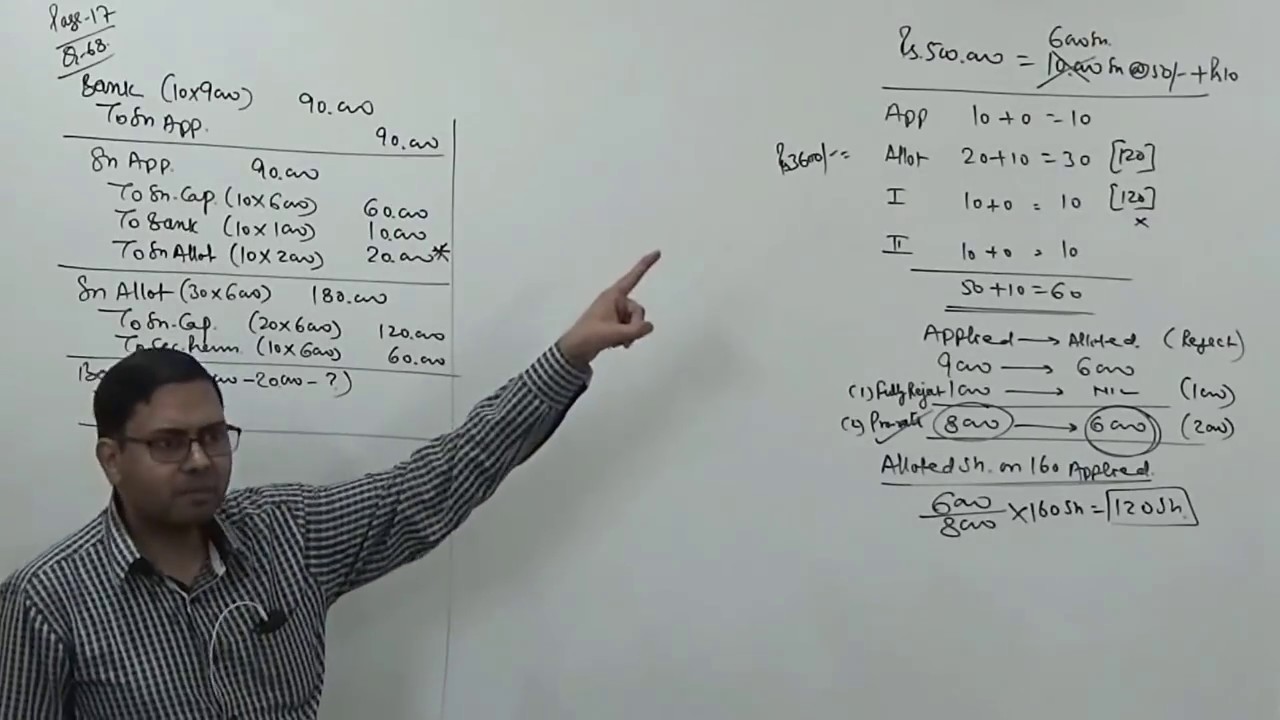 Page-17
Q-68.
Bank (10×9000) 90.000
To Sh App. 90.000
Sh App. 90.000
To Sh. Cap. (10×6000) 60.000
To Bank (10×1000) 10.000
To Sh Allot (10×2000) 20.000*
Sh Allot (30×6000) 180.000
To Sh. Cap. (20×6000) 120.000
To Sec. Prem. (10×6000) 60.000
000-20000-?)
Rs.500.000 = 10.000 Sh @50/- + Rs10
6000 Sh.
App 10+0=10
Rs3600/-= Allot 20+10=30 [120]
I 10+0=10 [120]
×
II 10+0=10
50+10=60
Applied → Alloted. (Reject)
9000 → 6000
(1) Fully Reject 1000 → NIL (1000)
(2) Pro-rata 8000 → 6000 (2000)
Alloted Sh. on 160 Applied.
6000/8000 ×160 Sh = 120 Sh.